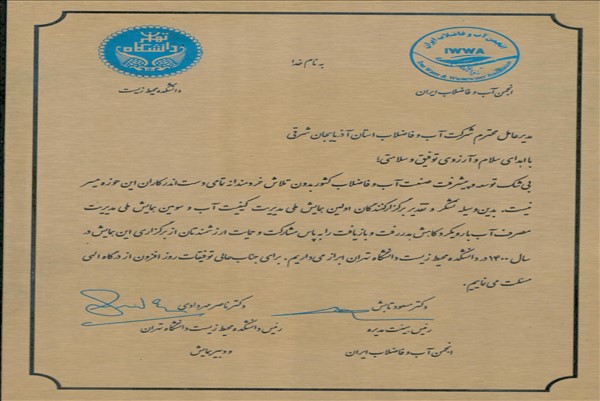 به نام خدا
دانشگاه تهران
دانشکده محیط زیست
انجمن آب و فاضلاب ایران
IWWA
Iran Water & Wastewater Association
انجمن آب و فاضلاب ایران
مدیرعامل محترم شرکت آب و فاضلاب استان آذربایجان شرقی
با اهدای سلام و آرزوی توفیق و سلامتی؛
بی شک توسعه و پیشرفت صنعت آب و فاضلاب کشور بدون تلاش خردمندانه تمامی دست اندرکاران این حوزه میسر
نیست. بدین وسیله تشکر و تقدیر برگزارکنندگان اولین همایش ملی مدیریت کیفیت آب و سومین همایش ملی مدیریت
مصرف آب با رویکرد کاهش هدررفت و بازیافت را به پاس مشارکت و حمایت ارزشمندتان از برگزاری این همایش در
سال ۱۴۰۰ در دانشکده محیط زیست دانشگاه تهران ابراز می داریم. برای جنابعالی توفیقات روز افزون از درگاه الهی
مسئلت می نماییم.
دکتر مسعود تابش
رئیس هیئت مدیره
انجمن آب و فاضلاب ایران
دکتر ناصر مهردادی
رئیس دانشکده محیط زیست دانشگاه تهران
و دبیر همایش